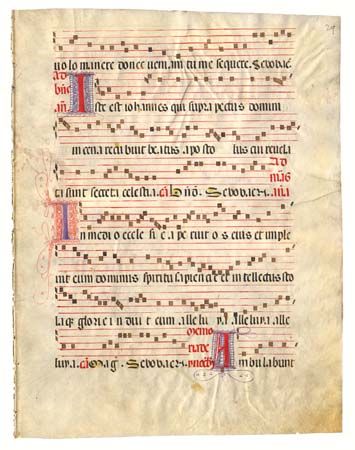 uolo manere donec ueniam tu me sequere. Seuouae
ad bñe añ. Iste est iohannes qui supra pectus domini
in cena recubuit beatus aposto lus cui reuela
ad mag
ti sunt secreta celestia. Seuouae. aña
In medio eccle si e a pe ruit o s eius et imple
uit eum dominus spiritu sapien ci e et in tellectus sto
la glorie in du it eum alle lu ya alle luya alle
luya. Mag. Seuouae. A m bulabunt